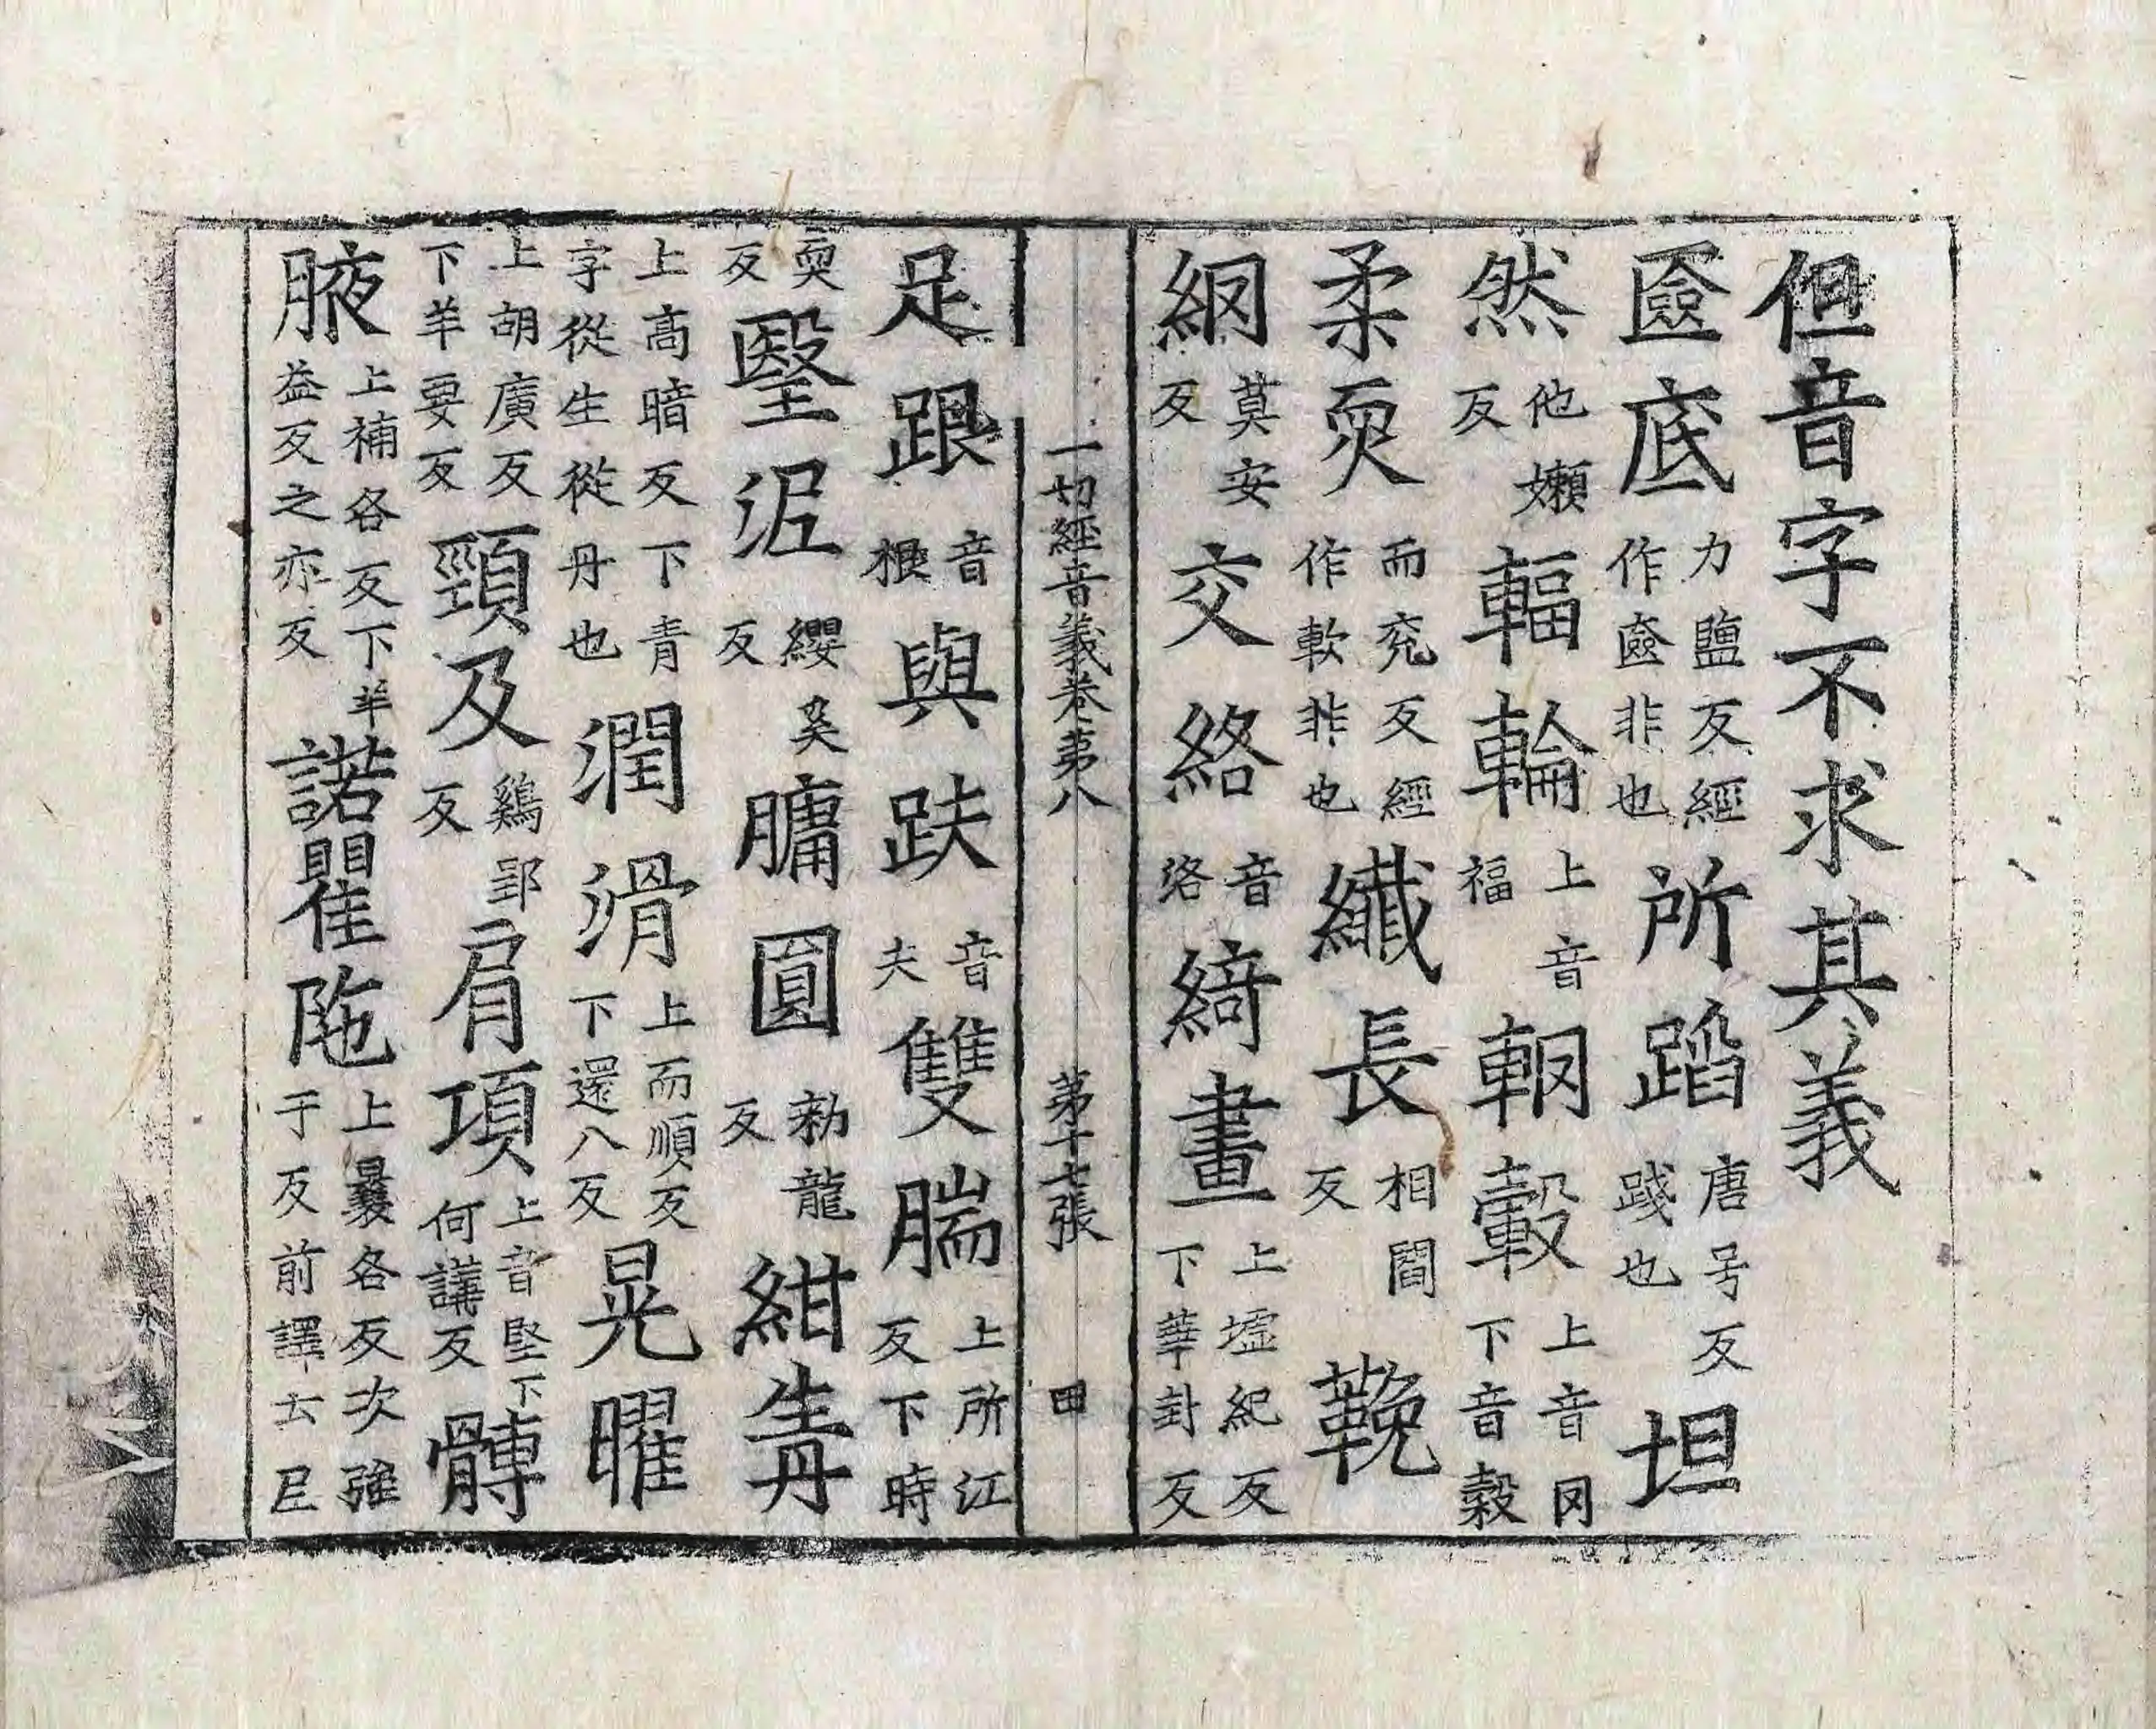 但音字不求其義
匳底力鹽反經作奩非也所蹈唐号反踐也坦
然他嬾反輻輪上音福輞轂上音罔下音穀
柔耎而兖反經作軟非也纖長相閻反鞔
網莫安反交絡音洛綺畫上墟紀反下華卦反
一切經音義卷第八 第十七張 田
足跟音根與趺音夫雙腨上所江反下時
耎反瑿泥纓奚反𦟛圓勑龍反紺青
上高暗反下青字從生從丹也潤滑上而順反下還八反晃曜
上胡廣反下羊要反頸及鷄郢反肩項上音堅下何講反髆
腋上補各反下羊益反之亦反諾瞿陁上曩各反次強于反前譯云尼